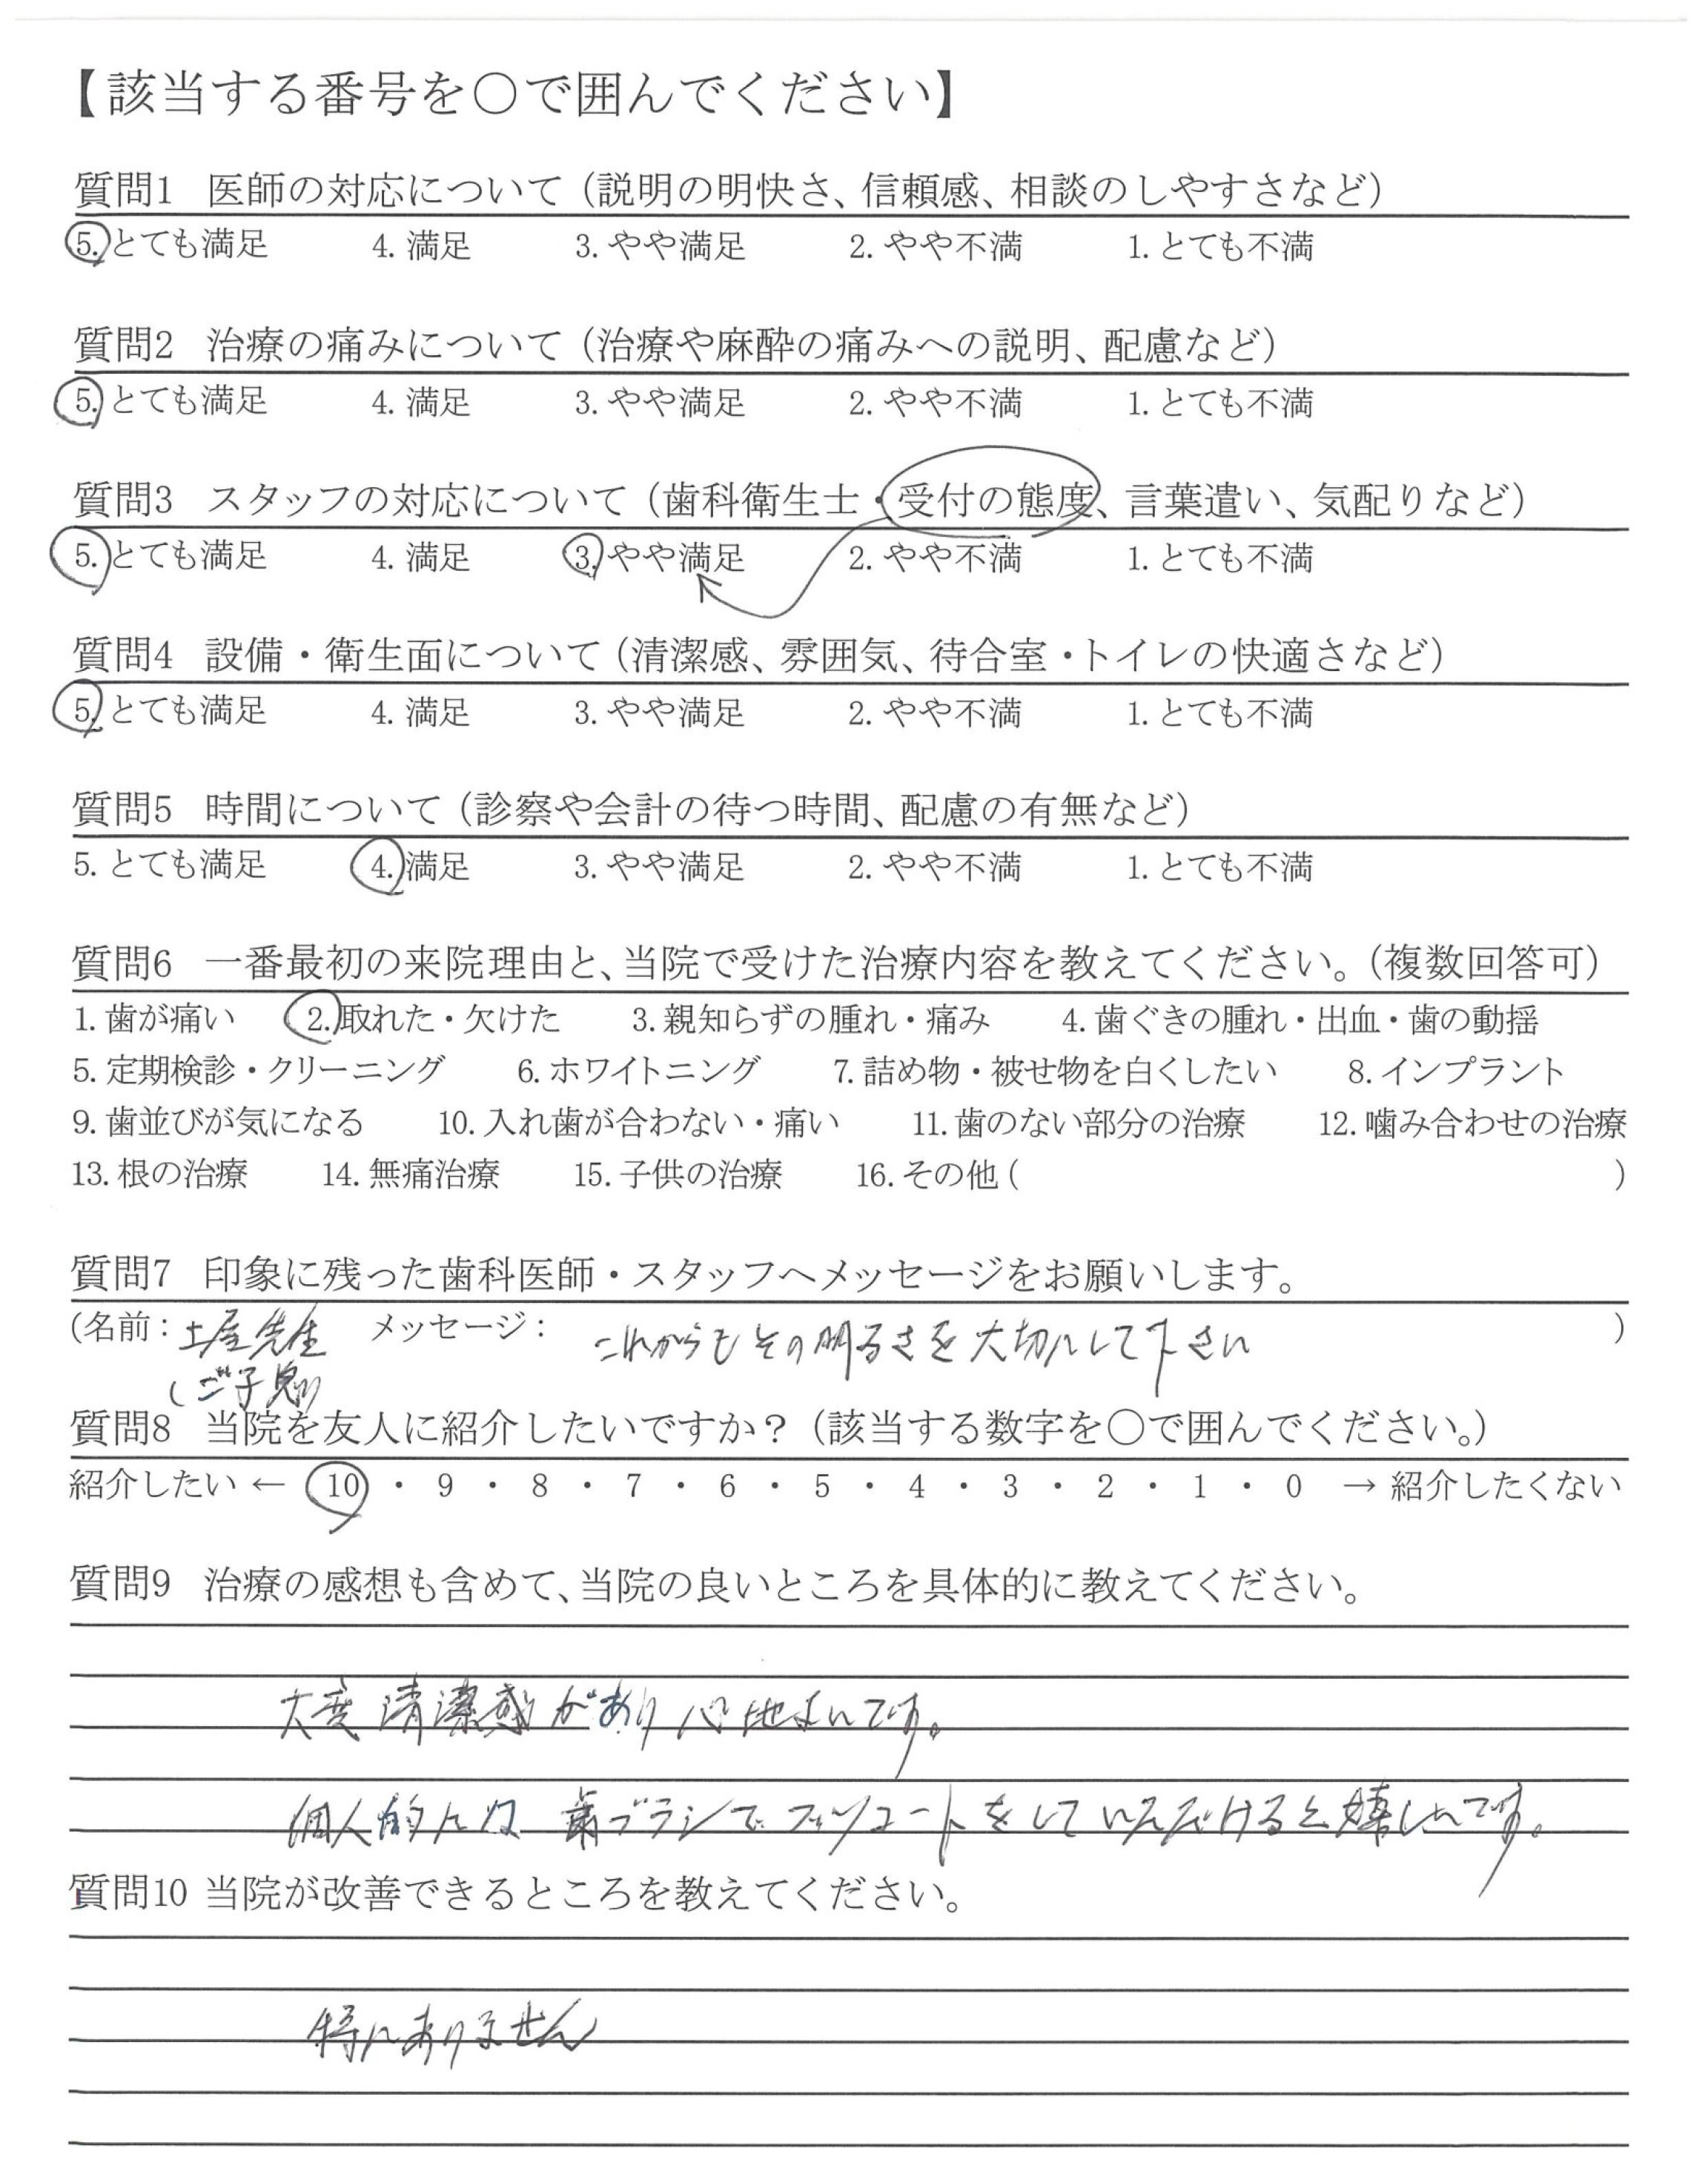 【該当する番号を○で囲んでください】
質問1 医師の対応について（説明の明快さ、信頼感、相談のしやすさなど）
5. とても満足 4. 満足 3. やや満足 2. やや不満 1. とても不満
質問2 治療の痛みについて（治療や麻酔の痛みへの説明、配慮など）
5. とても満足 4. 満足 3. やや満足 2. やや不満 1. とても不満
質問3 スタッフの対応について（歯科衛生士・受付の態度、言葉遣い、気配りなど）
5. とても満足 4. 満足 3. やや満足 2. やや不満 1. とても不満
質問4 設備・衛生面について（清潔感、雰囲気、待合室・トイレの快適さなど）
5. とても満足 4. 満足 3. やや満足 2. やや不満 1. とても不満
質問5 時間について（診察や会計の待つ時間、配慮の有無など）
5. とても満足 4. 満足 3. やや満足 2. やや不満 1. とても不満
質問6 一番最初の来院理由と、当院で受けた治療内容を教えてください。（複数回答可）
1. 歯が痛い 2. 取れた・欠けた 3. 親知らずの腫れ・痛み 4. 歯ぐきの腫れ・出血・歯の動揺
5. 定期検診・クリーニング 6. ホワイトニング 7. 詰め物・被せ物を白くしたい 8. インプラント
9. 歯並びが気になる 10. 入れ歯が合わない・痛い 11. 歯のない部分の治療 12. 噛み合わせの治療
13. 根の治療 14. 無痛治療 15. 子供の治療 16. その他（ ）
質問7 印象に残った歯科医師・スタッフへメッセージをお願いします。
（名前：土屋先生 メッセージ： これからもその明るさを大切にして下さい ）
（ご子息）
質問8 当院を友人に紹介したいですか？（該当する数字を○で囲んでください。）
紹介したい ← 10 ・ 9 ・ 8 ・ 7 ・ 6 ・ 5 ・ 4 ・ 3 ・ 2 ・ 1 ・ 0 → 紹介したくない
質問9 治療の感想も含めて、当院の良いところを具体的に教えてください。
大変清潔感があり心地よいです。
個人的には歯ブラシでフッソコートをしていただけると嬉しいです。
質問10 当院が改善できるところを教えてください。
特にありません